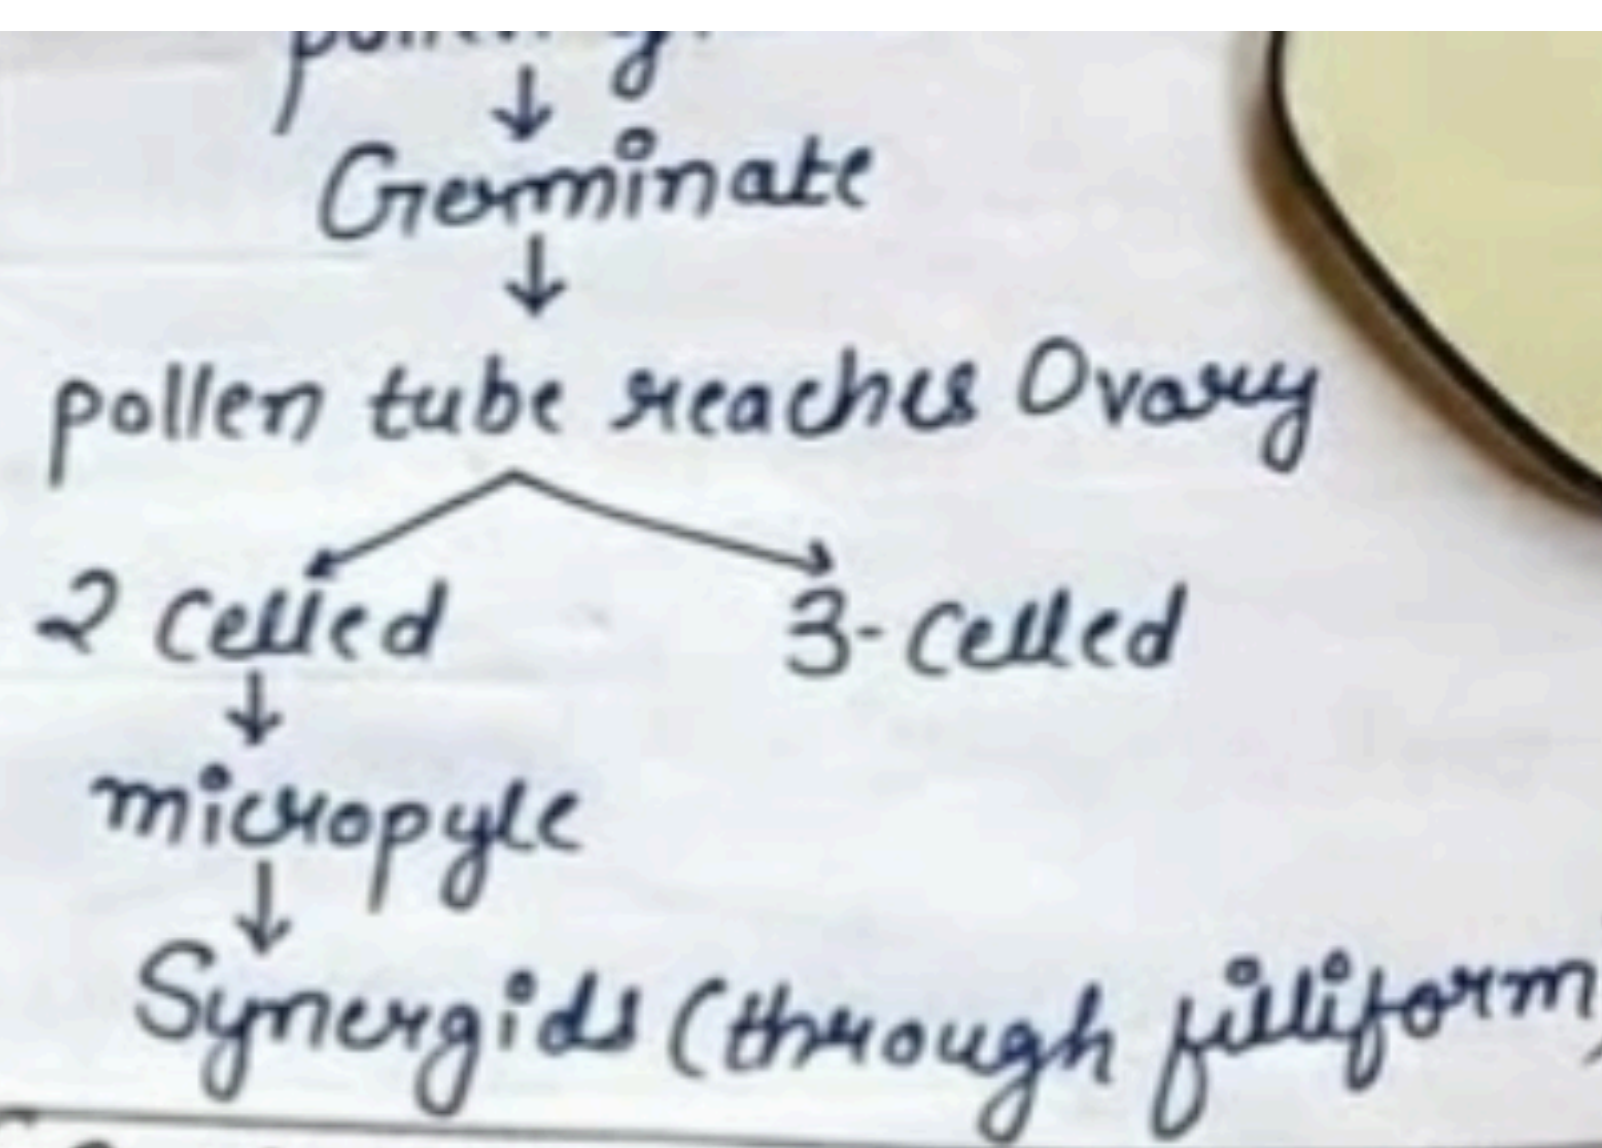 Germinate
pollen tube reaches Ovary
2 Celled 3-Celled
micropyle
Synergids (through filliform)